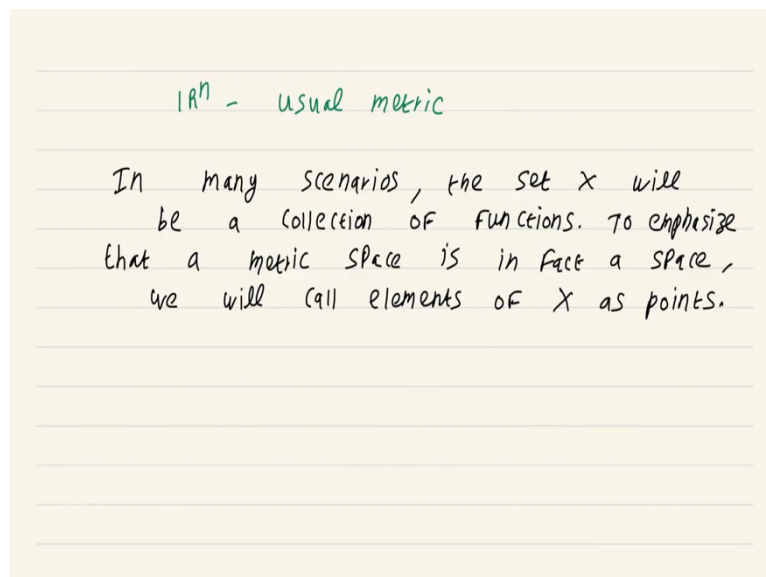 ℝⁿ - usual metric
In many scenarios, the set X will
be a collection of functions. To emphasize
that a metric space is in fact a space,
we will call elements of X as points.